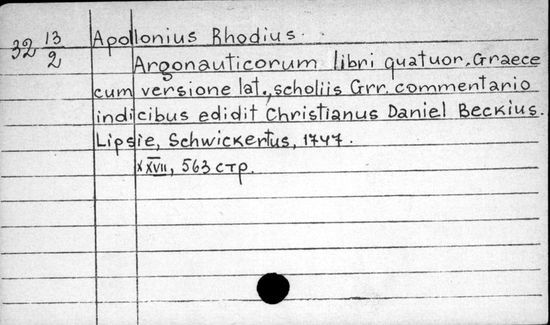 32 13/2 Apollonius Rhodius.
Argonauticorum libri quatuor, Graece
cum versione lat., scholiis Grr. commentario
indicibus edidit Christianus Daniel Beckius.
Lipsie, Schwickertus, 1747.
XXVII, 563 стр.